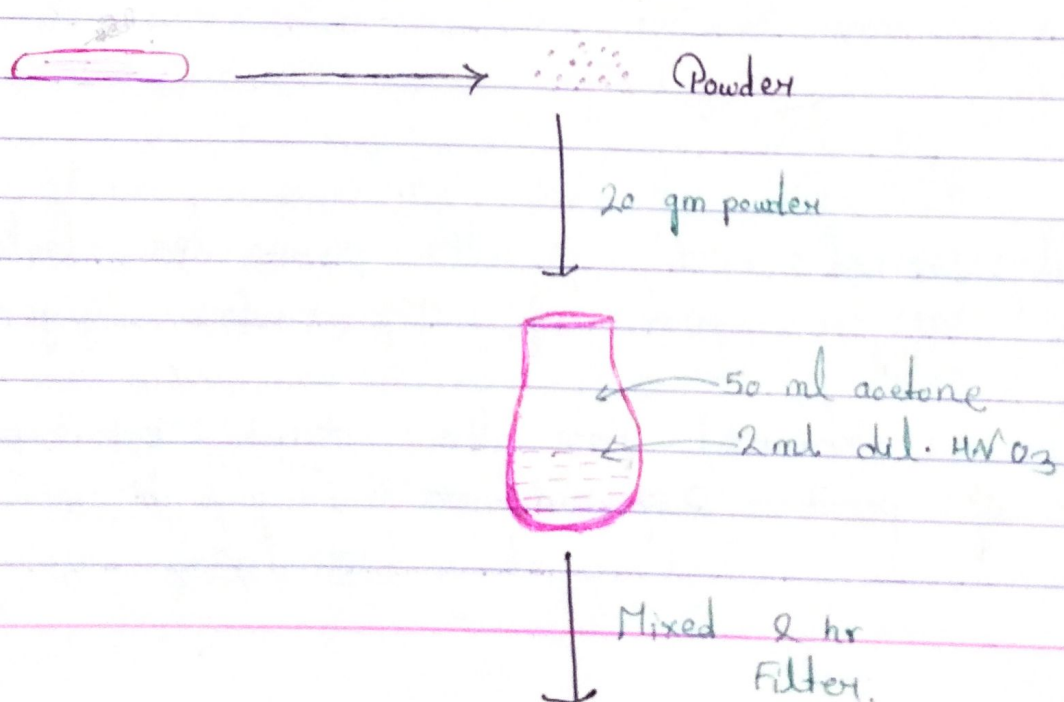 Powder
20 gm powder
50 ml acetone
2ml dil. HNO3
Mixed 2 hr
Filter.